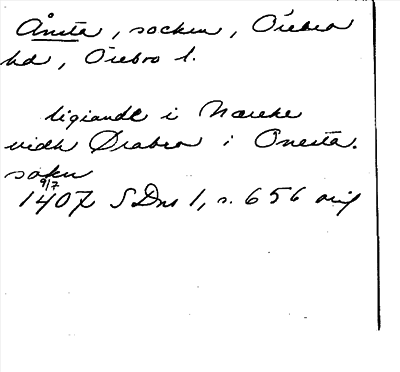 Ånsta, socken, Örebro
hd, Örebro l.
ligiande i Nærike
vidh Ørabro i Ønesta.
sokn
9/7
1407 SDns 1, s. 656 orig